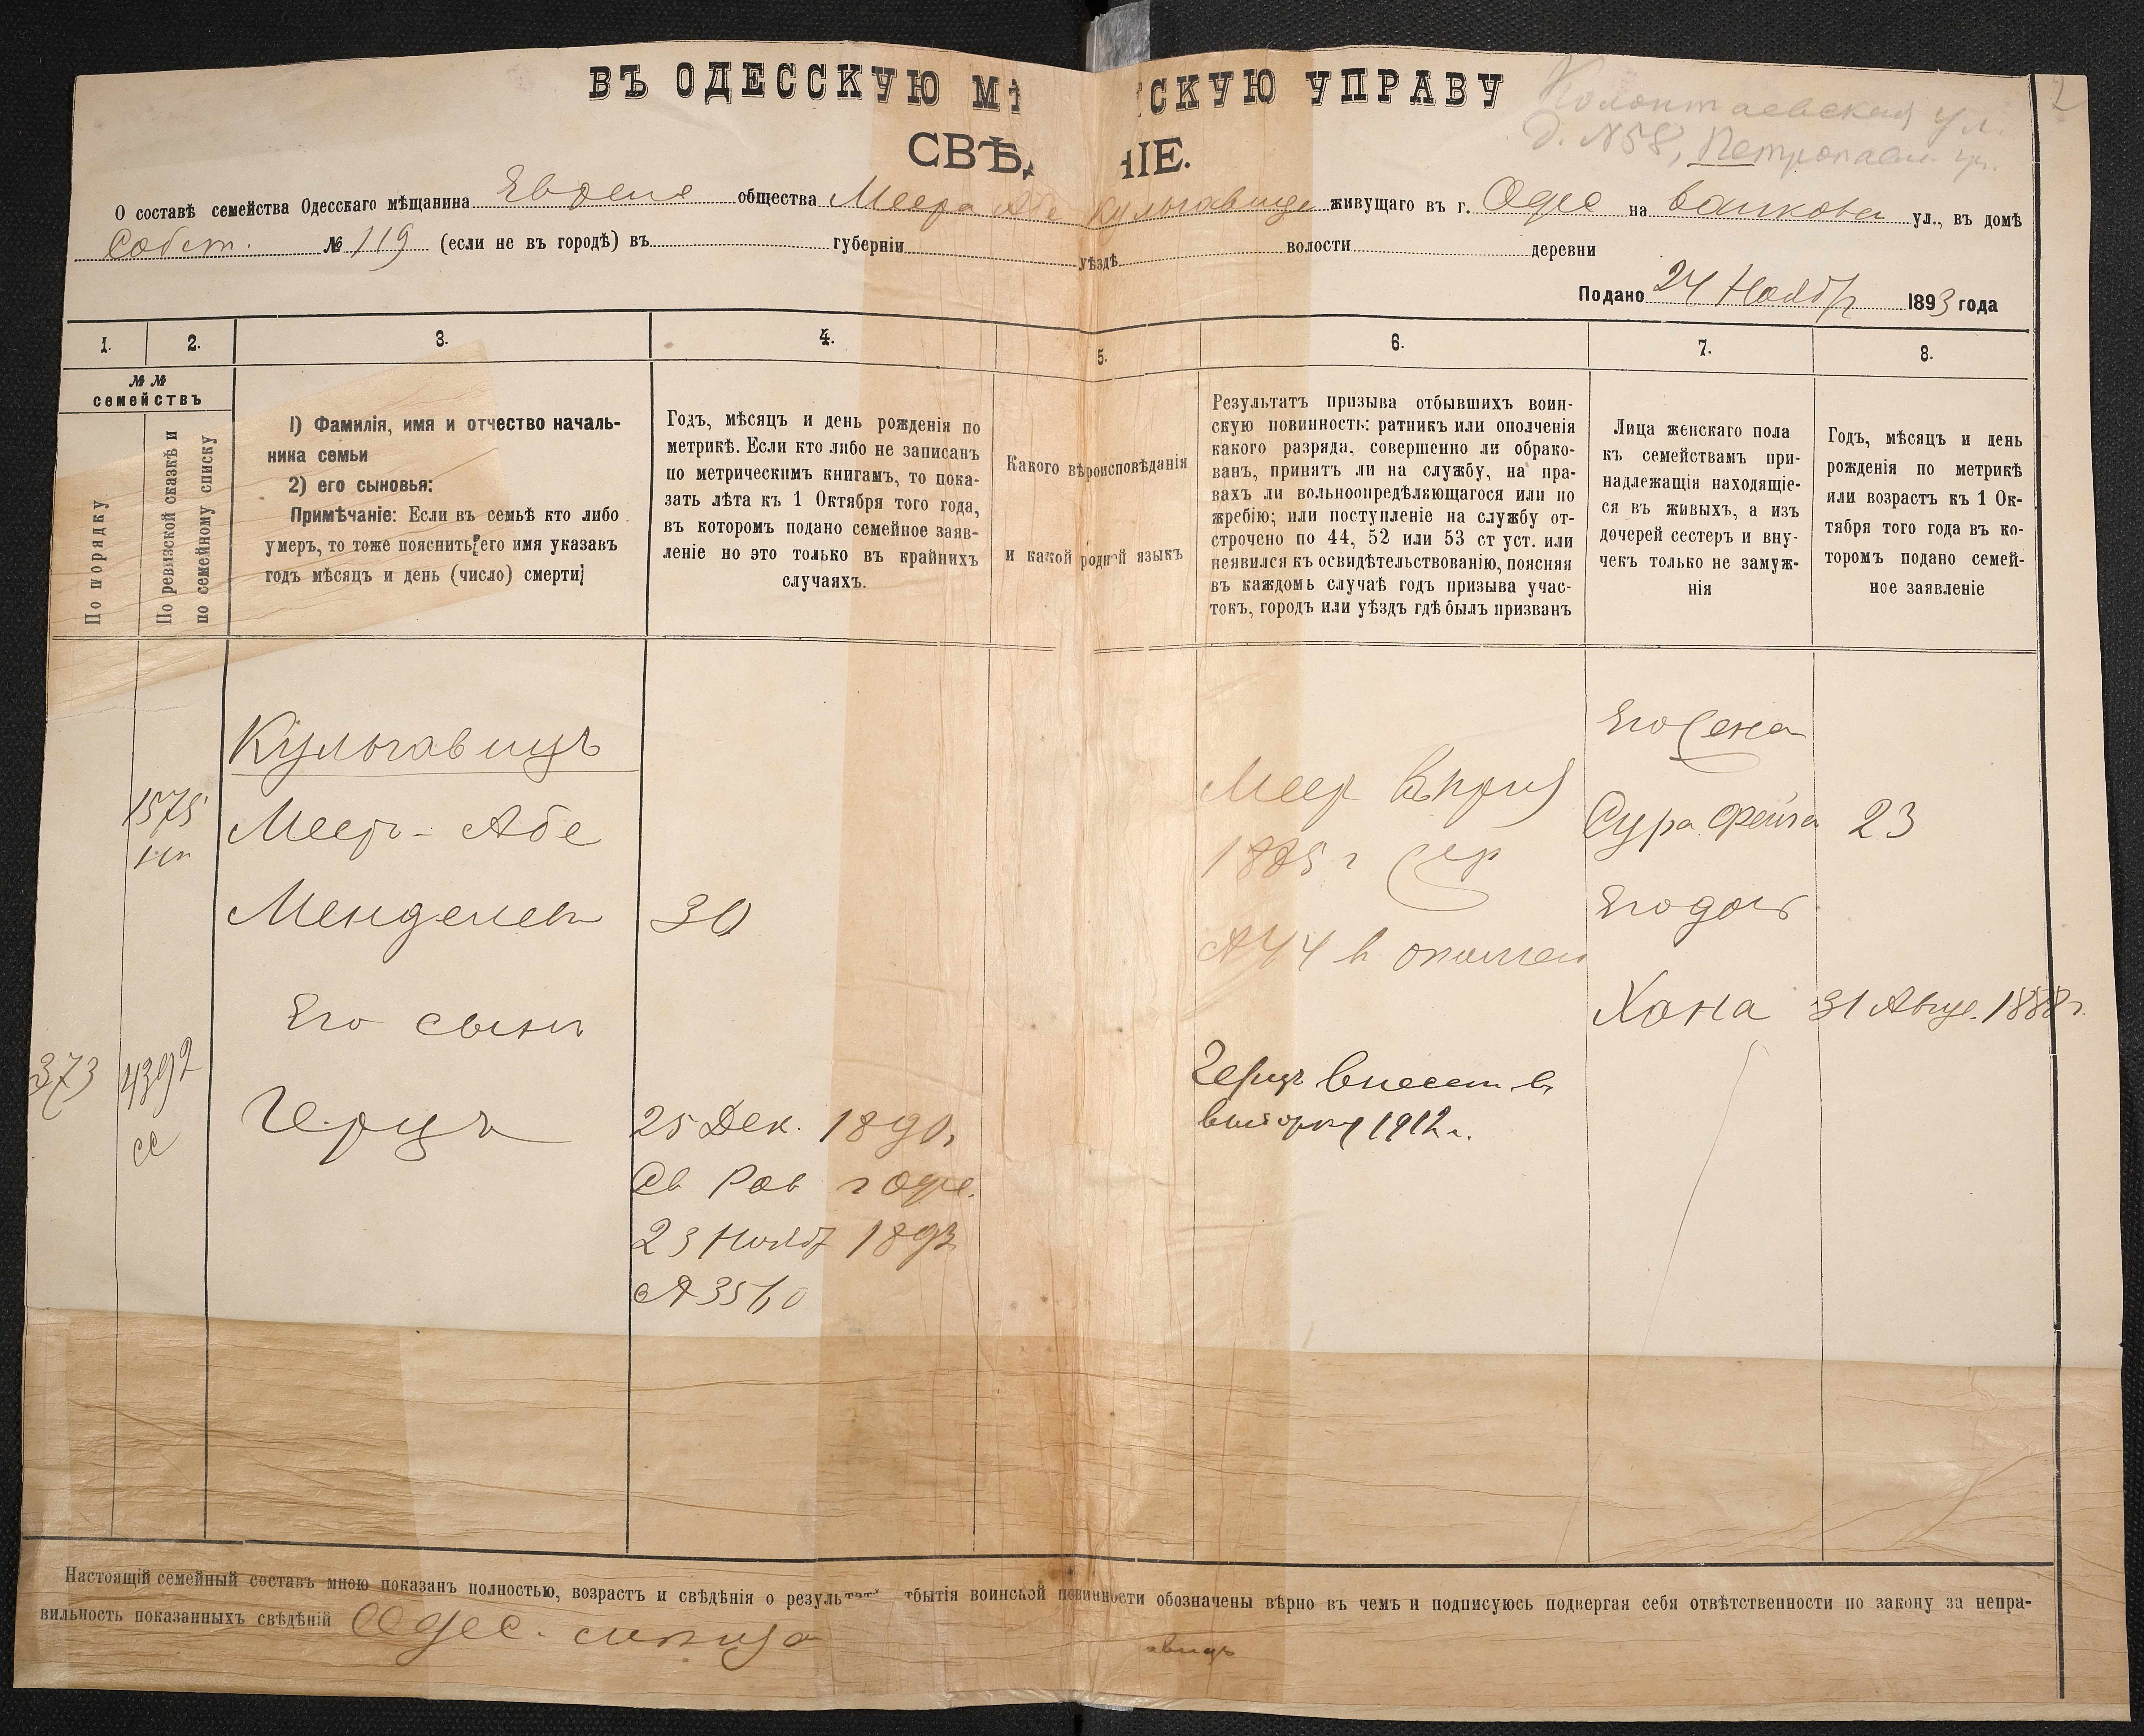 ВЪ ОДЕССКУЮ МѢ СКУЮ УПРАВУ
Колонтаевская ул.
СВѢД НІЕ.
д. №58, Петропавл.
О составѣ семейства Одесскаго мѣщанина общества Меера Абе Кульчавица живущаго въ г. Одес на ул., въ домѣ
Собст. № 119 (если не въ городѣ) въ губерніи уѣздѣ волости деревни
Подано 24 Ноябр 1893 года
1. 2. 3. 4. 5. 6. 7. 8.
№ №
семействъ
По порядку
По ревизской сказкѣ и
по семейному списку
1) Фамилія, имя и отчество началь-
ника семьи
2) его сыновья:
Примѣчаніе: Если въ семьѣ кто либо
умеръ, то тоже пояснить его имя указавъ
годъ мѣсяцъ и день (число) смерти
Годъ, мѣсяцъ и день рожденія по
метрикѣ. Если кто либо не записанъ
по метрическимъ книгамъ, то пока-
зать лѣта къ 1 Октября того года,
въ которомъ подано семейное заяв-
леніе но это только въ крайнихъ
случаяхъ.
Какого вѣроисповѣданія
и какой родной языкъ
Результатъ призыва отбывшихъ воин-
скую повинность: ратникъ или ополченія
какого разряда, совершенно ли обрако-
ванъ, принятъ ли на службу, на пра-
вахъ ли вольноопредѣляющагося или по
жребію; или поступленіе на службу от-
строчено по 44, 52 или 53 ст уст. или
неявился къ освидѣтельствованію, поясняя
въ каждомъ случаѣ годъ призыва учас-
токъ, городъ или уѣздъ гдѣ былъ призванъ
Лица женскаго пола
къ семействамъ при-
надлежащія находящіе-
ся въ живыхъ, а изъ
дочерей сестеръ и вну-
чекъ только не замуж-
нія
Годъ, мѣсяцъ и день
рожденія по метрикѣ
или возрастъ къ 1 Ок-
тября того года въ ко-
торомъ подано семей-
ное заявленіе
Кульчавицъ
Его жена
1575
Мееръ-Абе
Меер
Сура Фейга 23
1885 г жер
Менделев 30
Его доч
№ 44 в ополчен
Его сынъ
Хана 31 Авгус. 1888 г.
373 4392
Герцъ 25 Дек. 1890 г
Герцъ внесен въ
1912 г.
Св Рав г Одес.
23 Ноябр 1893
№ 3560
Настоящій семейный составъ мною показанъ полностью, возрастъ и свѣдѣнія о результат тбытія воинской повинности обозначены вѣрно въ чемъ и подписуюсь подвергая себя отвѣтственности по закону за непра-
вильность показанныхъ свѣдѣній Одес.